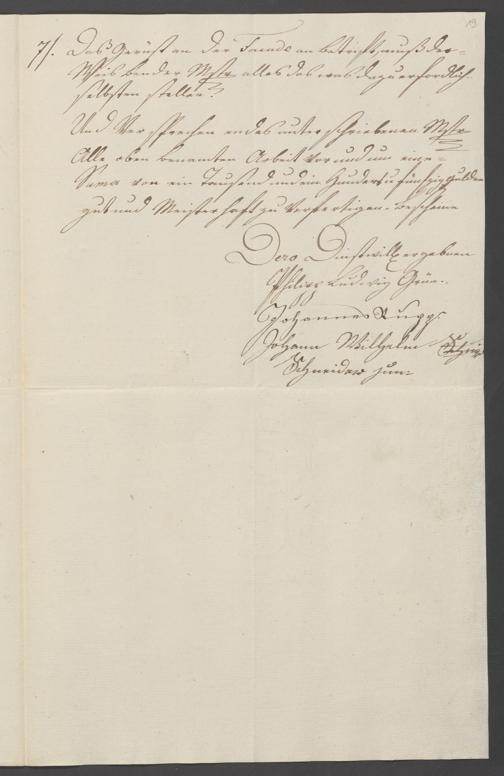 19.
7/. Das Gerüst an der Facade an betrifft, muß der-
Weis bender Mstr alles das was dazu erfordlich
selbsten stellen.
Und Versprechen endes unterschriebenen Mstr
Alle oben benamten Arbeit vor und um eine
Suma von ein Tausend und ein Hundert u fünfzig Gulden
gut und Meisterhaft zu Verfertigen. Bescheine
Dero Dinstwillig ergebnen
Philipp Ludwig Grün.
Johannes Rupp.
Johann Wilhelm
Schneider jun.